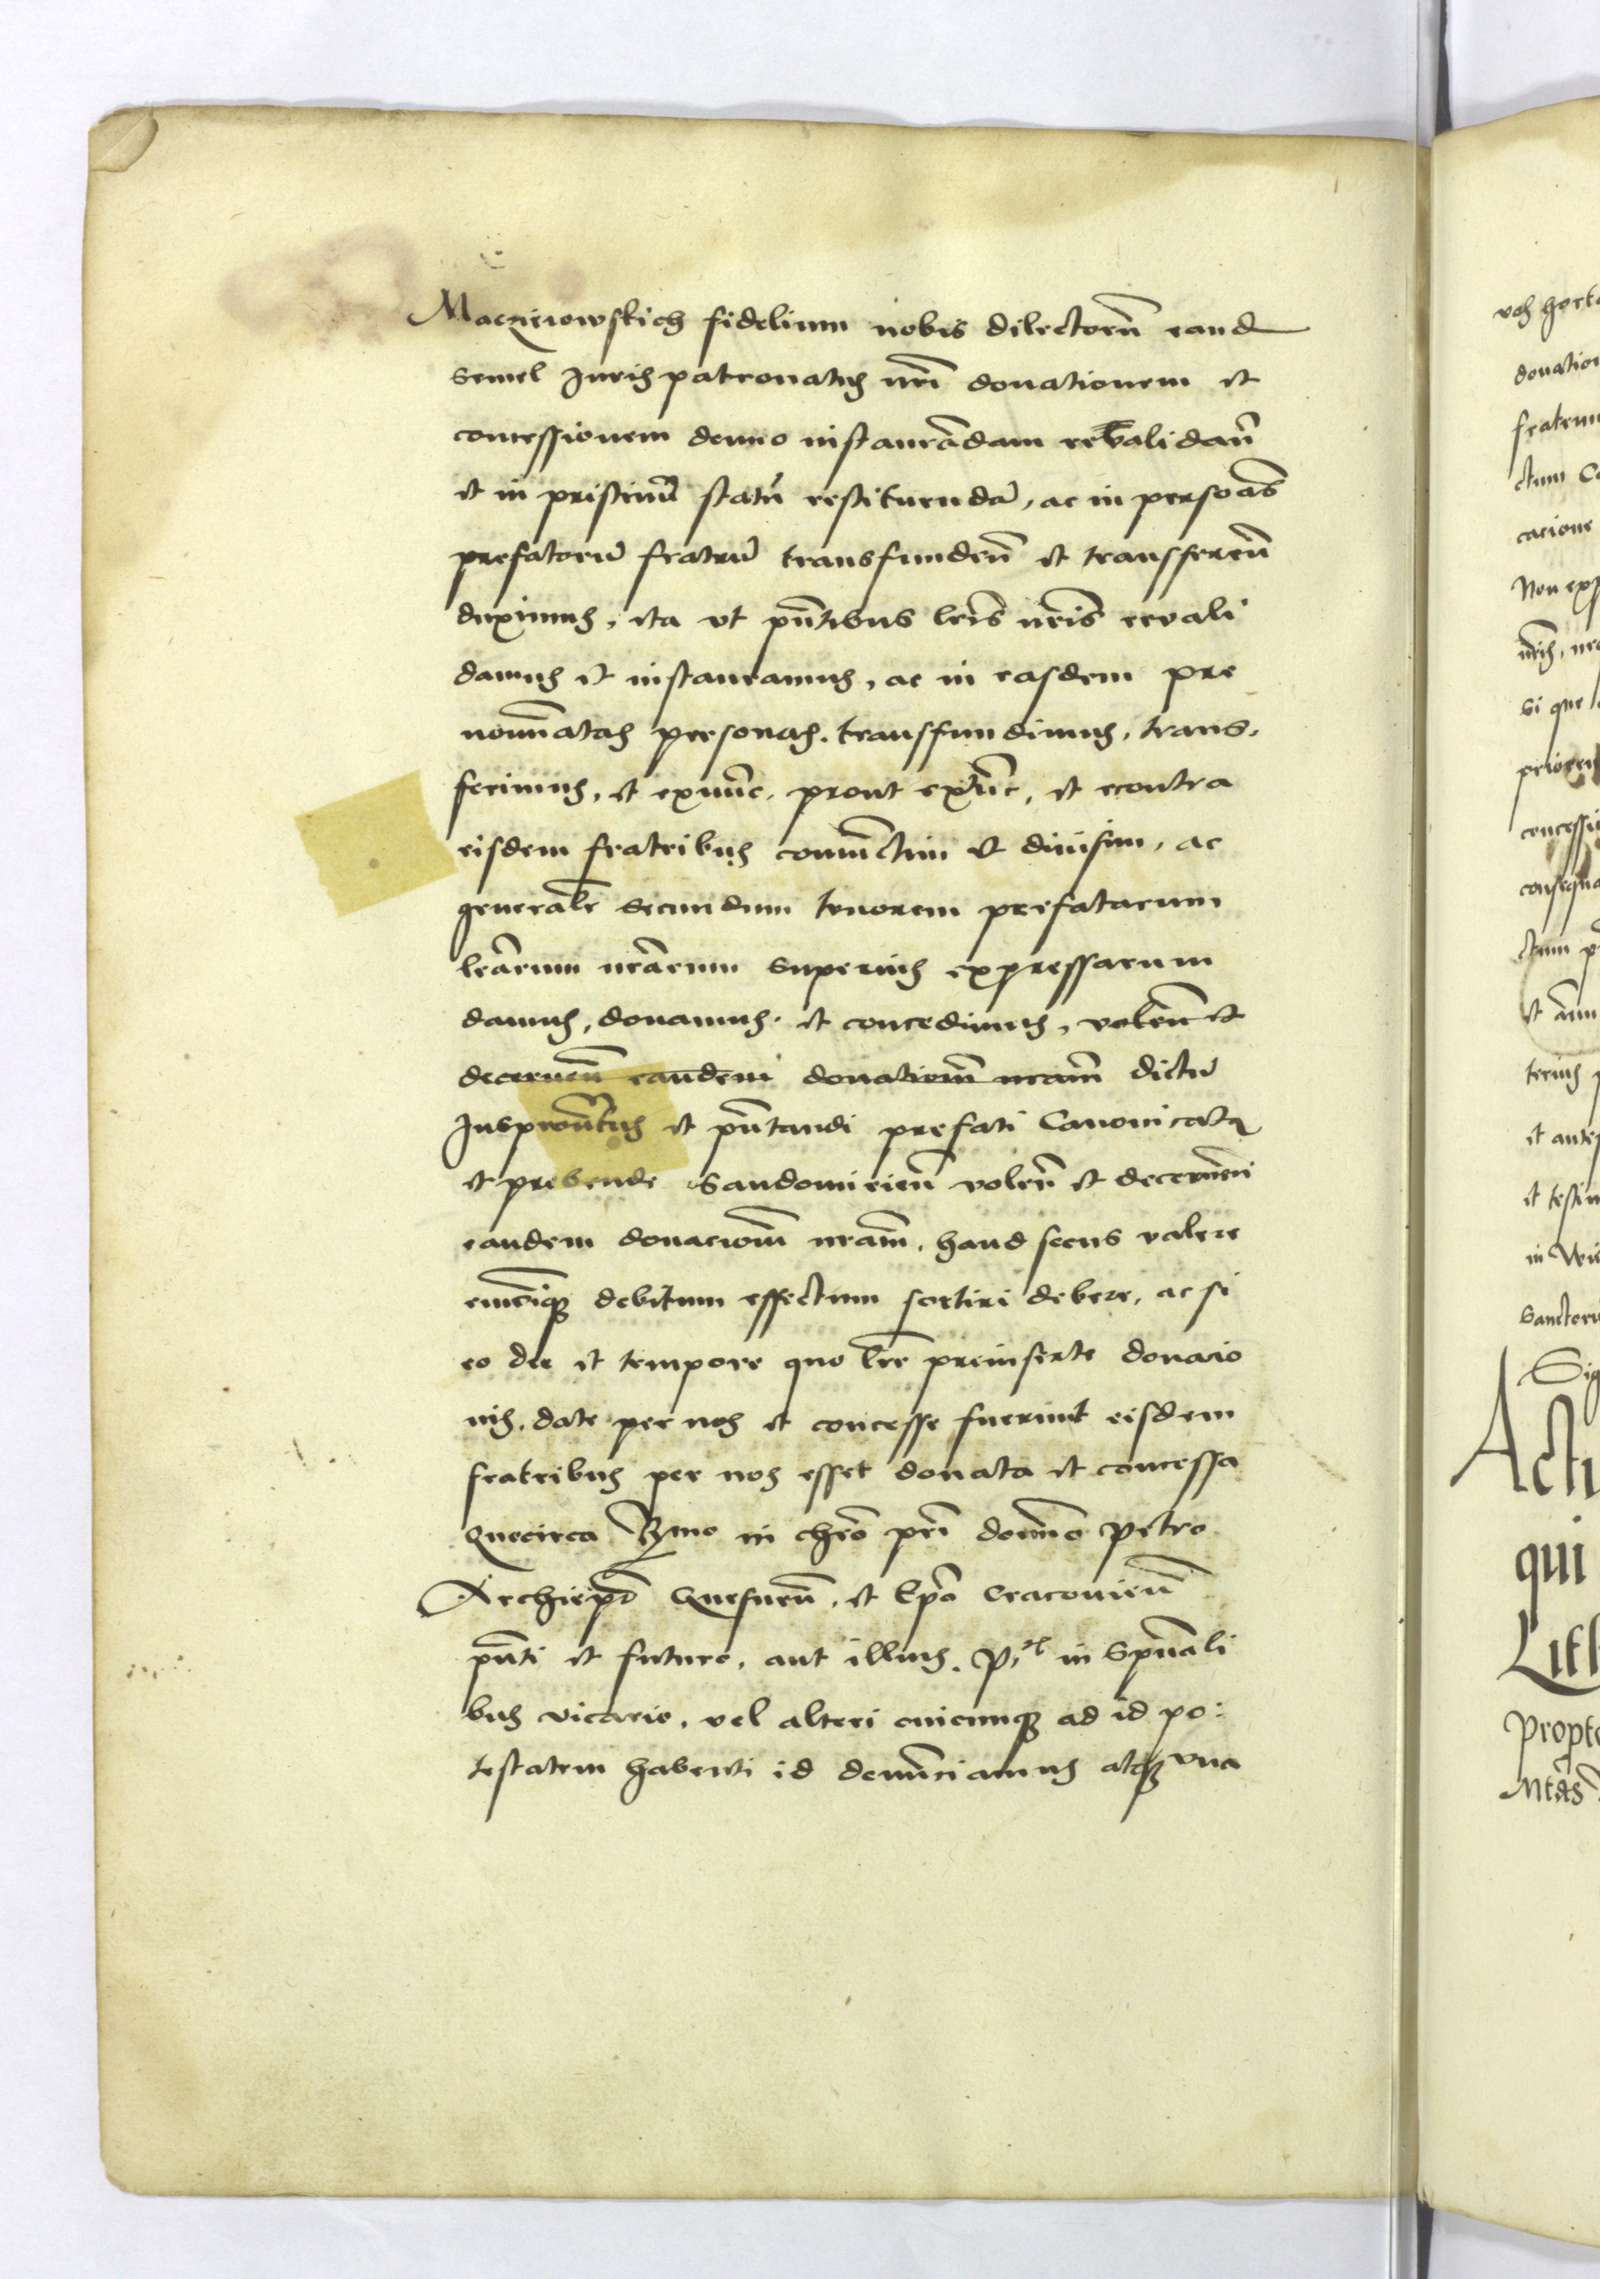 Maczieiowskich fidelium nobis dilectorū eand
semel Juris patronatus nr̄i donationem et
concessionem denuo instaurādam revalidan̄
et in pristinū statū restituendā, ac in persoās
prefatorū fratrū transfunden̄ et transferen̄
duximus, ita vt pn̄tibus lr̄is nr̄is revali
damus et instauramus, ac in easdem pre
nomīatas personas. transfundimus, trans,
ferimus, et exnūc, prout extūc, et econtra
eisdem fratribus coniūctim et diuisim, ac
generalr̄ secundum tenorem prefatarum
lr̄arum nr̄arum superius expressarum
damus, donamus. et concedimus, volen̄ et
decernen̄ eandem donationē nram̄ dictū
Juspron̄tus et pn̄tandi prefati Canonicatꝯ
et prebende Sandomirien̄ volen̄ et decernen̄
eandem donacionē nram̄, haud secus valere
eumq̄ debitum effectum sortiri debere, ac si
eo die et tempore quo lr̄e preinserte donacio
nis, date per nos et concesse fuerunt eisdem
fratribus per nos esset donata et concessa
Quocirca Rmo in chr̄o pr̄i domīo Petro
Archiep̄o Gnesnen̄, et Ep̄o Cracovien̄
pn̄ti et futuro, aut illius, in Spūali
bus vicario, vel alteri cuicunqꝫ ad id po:
testatem habenti id denūciamus atqꝫ vna
vos horta
donation
fratrum
ctum C
cacione
Non exp
nr̄is, nr
si que
priores
concessi
consequa
ctum p
et
terius
et ante
et testim
in Wi
Sanctor
Sig
Acti
qui
Litt
Propt
Mtās